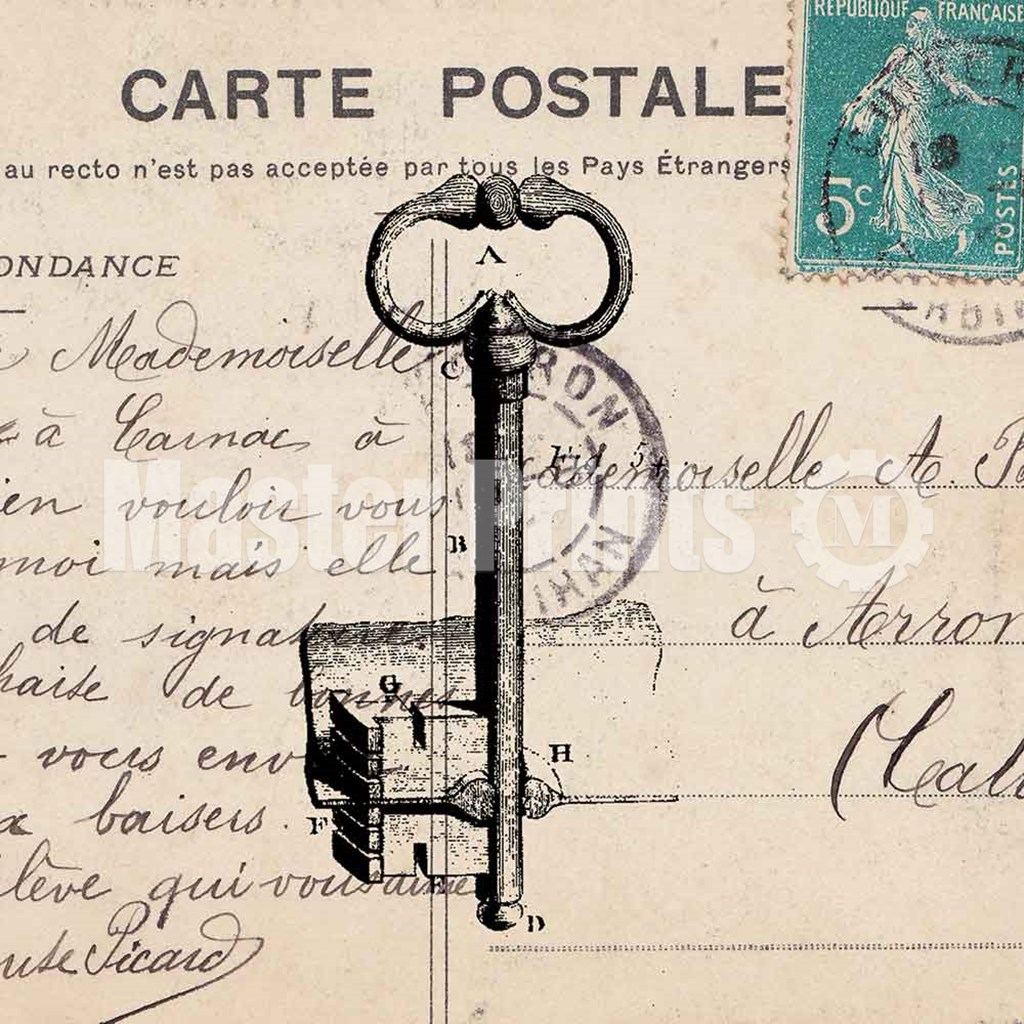 RÉPUBLIQUE FRANÇAISE
CARTE POSTALE
au recto n'est pas acceptée par tous les Pays Étrangers
5c
POSTES
ONDANCE
A
Mademoiselle
C
RON
à Carnac à
Fig. 5.
Mademoiselle A.
ien vouloir vous
Master Prints
M
moi mais elle
B
IHAN
de signature
à Arron
haise de bonnes
G
vous env
H
(Cal
baisers.
F
lève qui vous aime
E
D
Picard